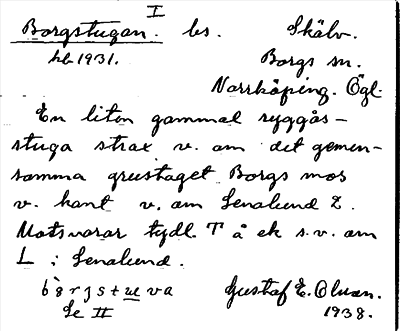 I
Borgstugan. bs. Skälv.
hb 1931. Borgs sn.
Norrköping. Ögl.
En liten gammal ryggås-
stuga strax v. om det gemen-
samma grustaget Borgs mos
v. kant v. om Senalund Z.
Motsvarar tydl. T å ek s.v. om
L i Senalund.
Gustaf E. Olson.
Se II 1938.